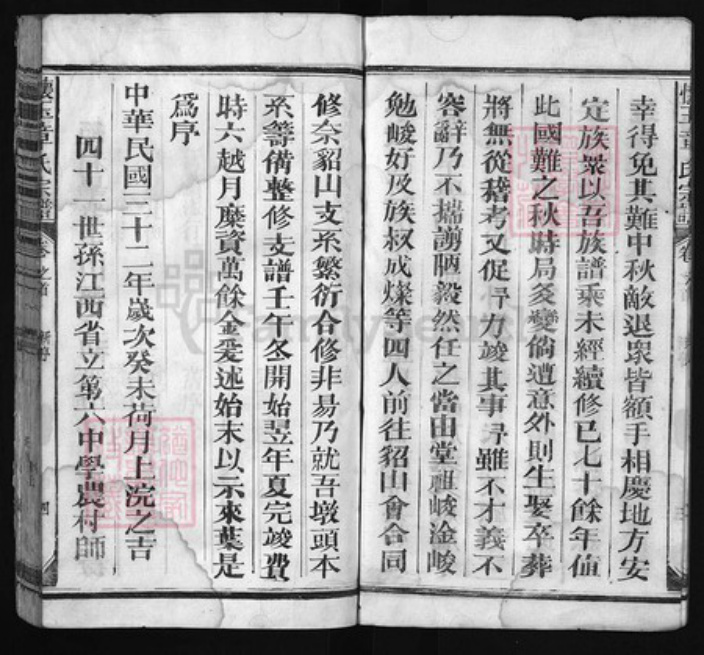 幸得免其難中秋敵退眾皆額手相慶地方安
定族眾以吾族譜乘未經續修已七十餘年值
此國難之秋時局多變倘遭意外則生娶卒葬
將無從稽考又促尋力竣其事尋雖不才義不
容辭乃不揣謭陋毅然任之當由堂祖峻淦峻
勉峻好及族叔成燦等四人前往貂山會合同
修奈貂山支系繁衍合修非易乃就吾墩頭本
系籌備整修支譜壬午冬開始翌年夏完竣費
時六越月糜資萬餘金爰述始末以示來葉是
為序
中華民國三十二年歲次癸未荷月上浣之吉
四十一世孫江西省立第六中學農村師
懷玉章氏宗譜
卷之首
四